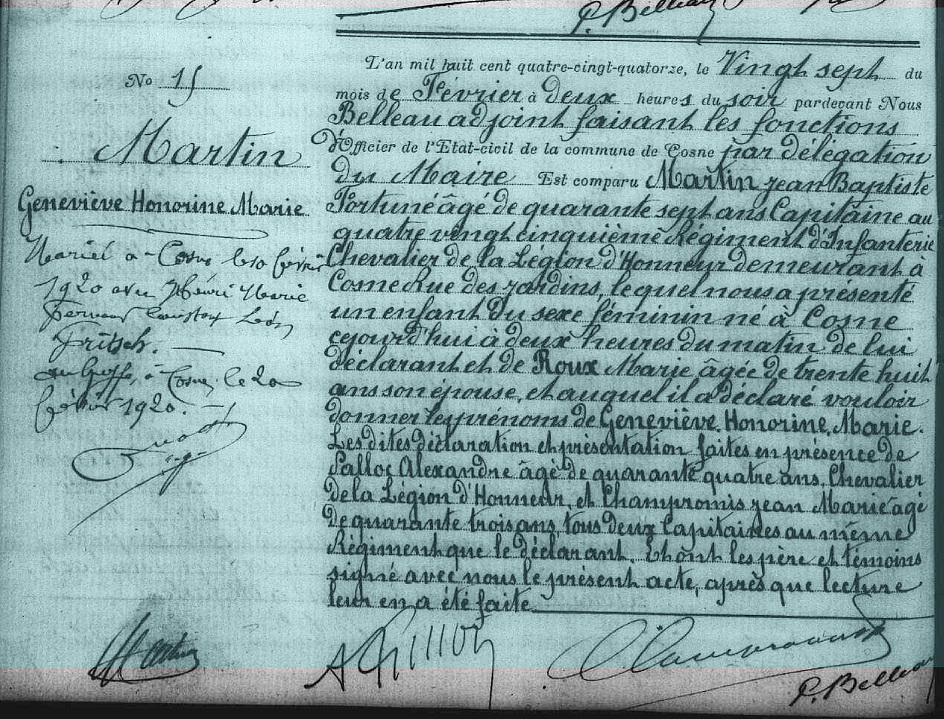 P. Belleau
No 15
Martin
Geneviève Honorine Marie
Mariée à Cosne le 10 février
1920 avec Henri Marie
Fernand Léon
Fritsch.
au Greffe, à Cosne, le 20
février 1920.
L'an mil huit cent quatre-vingt-quatorze, le Vingt sept du
mois de Février à deux heures du soir pardevant Nous
Belleau adjoint faisant les fonctions
d'Officier de l'Etat-civil de la commune de Cosne par délégation
du Maire Est comparu Martin jean Baptiste
Fortuné âgé de quarante sept ans Capitaine au
quatre vingt cinquième Régiment d'Infanterie
Chevalier de la Légion d'Honneur demeurant à
Cosne Rue des jardins, lequel nous a présenté
un enfant du sexe féminin né à Cosne
cejourd'hui à deux heures du matin de lui
déclarant et de Roux Marie âgée de trente huit
ans son épouse, et auquel il a déclaré vouloir
donner les prénoms de Geneviève, Honorine, Marie.
Les dites déclaration et présentation faites en présence de
Alexandre âgé de quarante quatre ans, Chevalier
de la Légion d'Honneur, et Champromis jean Marie âgé
de quarante trois ans, tous deux Capitaines au même
Régiment que le déclarant. Et ont les père et témoins
signé avec nous le présent acte, après que lecture
leur en a été faite
Martin
Champromis
P. Belleau